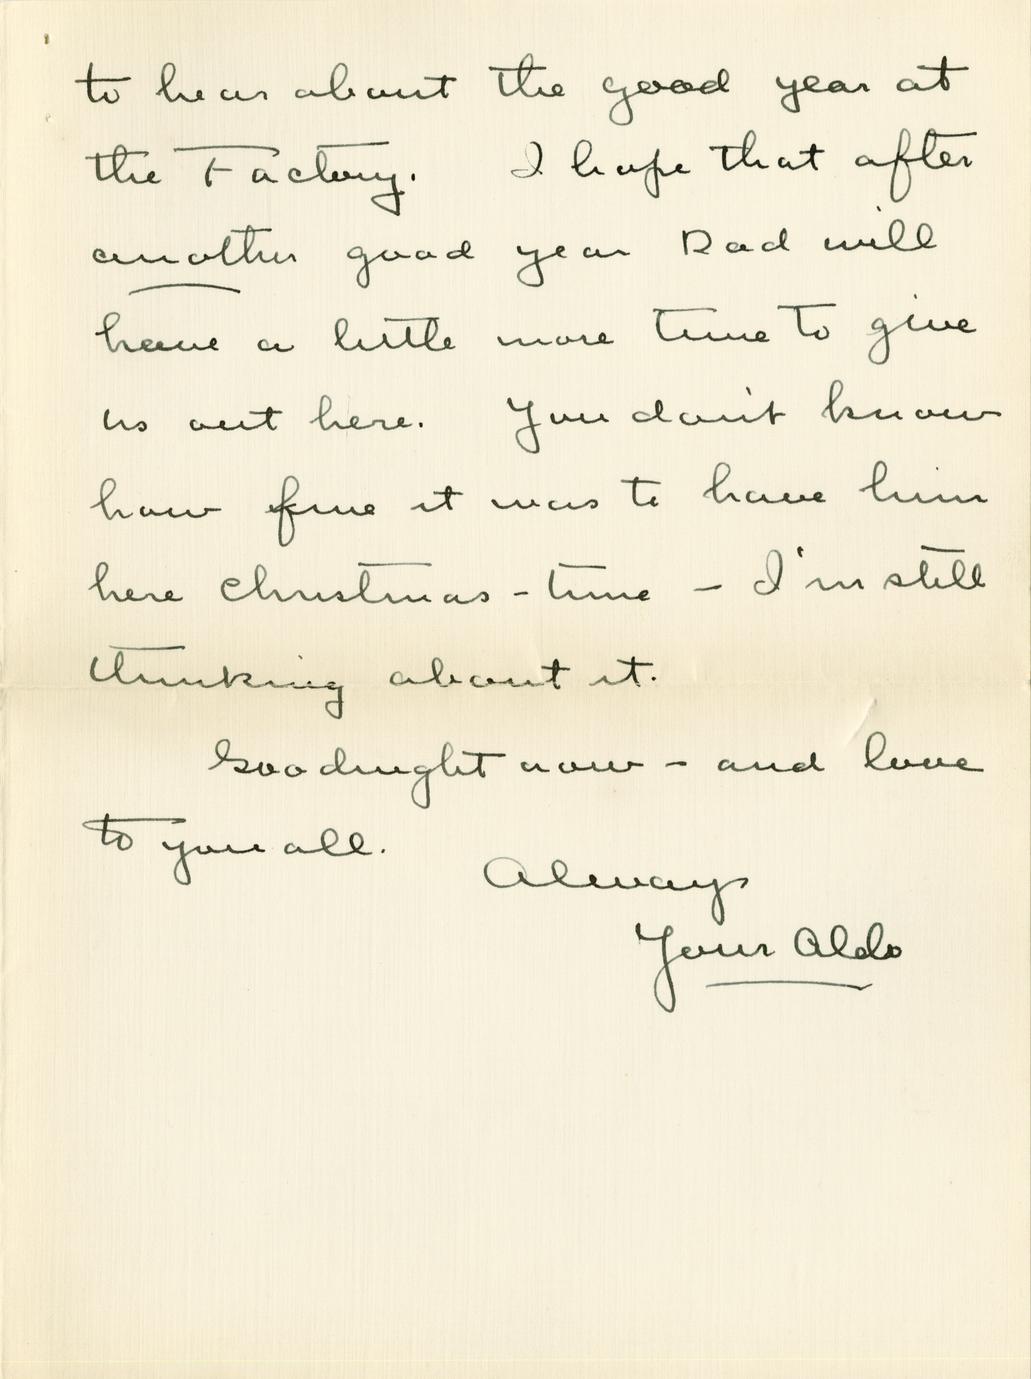 to hear about the good year at
the Factory. I hope that after
another good year Dad will
have a little more time to give
us out here. You don't know
how fine it was to have him
here Christmas-time - I'm still
thinking about it.
Goodnight now - and love
to you all.
Always
Your Aldo